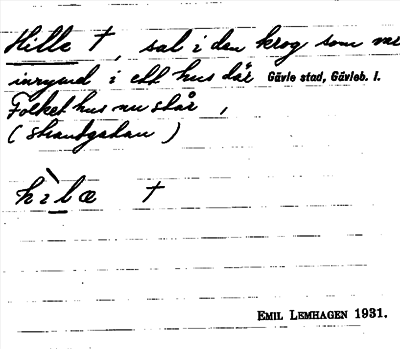 Hille †, sal i den krog som var
inrymd i ett hus där Gävle stad, Gävleb. l.
Folkets hus nu står,
(Strandgatan)
hìlæ †
EMIL LEMHAGEN 1931.